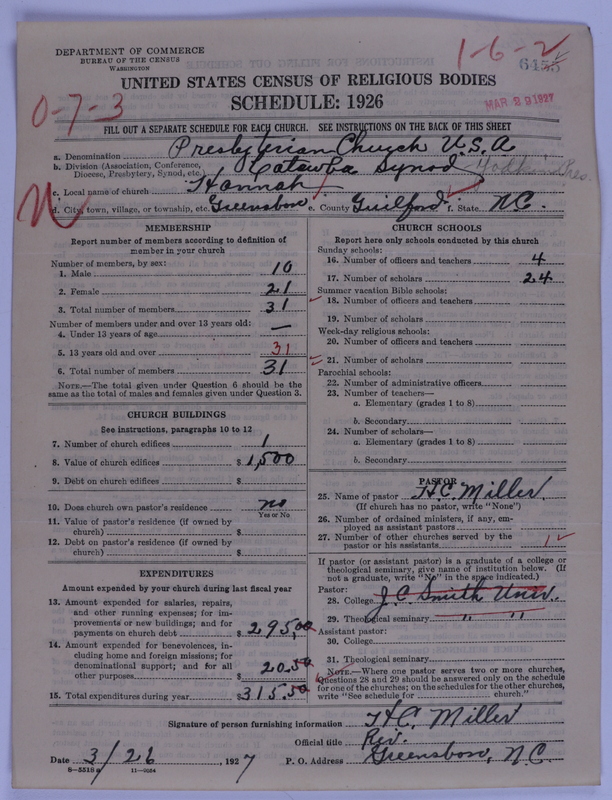 DEPARTMENT OF COMMERCE
BUREAU OF THE CENSUS
WASHINGTON
1-6-2
6455
MAR 29 1927
UNITED STATES CENSUS OF RELIGIOUS BODIES
SCHEDULE: 1926
0-7-3
FILL OUT A SEPARATE SCHEDULE FOR EACH CHURCH. SEE INSTRUCTIONS ON THE BACK OF THIS SHEET
a. Denomination Presbyterian Church U.S.A
b. Division (Association, Conference, Diocese, Presbytery, Synod, etc.) Catawba Synod Yadkin Pres.
c. Local name of church Hannah
d. City, town, village, or township, etc. Greensboro e. County Guilford f. State N.C.
MEMBERSHIP
Report number of members according to definition of
member in your church
Number of members, by sex:
1. Male 10
2. Female 21
3. Total number of members 31
Number of members under and over 13 years old:
4. Under 13 years of age —
5. 13 years old and over 31
6. Total number of members 31
NOTE.—The total given under Question 6 should be the
same as the total of males and females given under Question 3.
CHURCH BUILDINGS
See instructions, paragraphs 10 to 12
7. Number of church edifices 1
8. Value of church edifices $ 1,500
9. Debt on church edifices $
10. Does church own pastor's residence no
Yes or No
11. Value of pastor's residence (if owned by
church) $
12. Debt on pastor's residence (if owned by
church) $
EXPENDITURES
Amount expended by your church during last fiscal year
13. Amount expended for salaries, repairs,
and other running expenses; for im-
provements or new buildings; and for
payments on church debt $ 295,00
14. Amount expended for benevolences, in-
cluding home and foreign missions; for
denominational support; and for all
other purposes $ 20.50
15. Total expenditures during year $ 315.50
CHURCH SCHOOLS
Report here only schools conducted by this church
Sunday schools:
16. Number of officers and teachers 4
17. Number of scholars 24
Summer vacation Bible schools:
18. Number of officers and teachers
19. Number of scholars
Week-day religious schools:
20. Number of officers and teachers
21. Number of scholars
Parochial schools:
22. Number of administrative officers
23. Number of teachers—
a. Elementary (grades 1 to 8)
b. Secondary
24. Number of scholars—
a. Elementary (grades 1 to 8)
b. Secondary
PASTOR
25. Name of pastor H.C. Miller
(If church has no pastor, write "None")
26. Number of ordained ministers, if any, em-
ployed as assistant pastors
27. Number of other churches served by the
pastor or his assistants 1
If pastor (or assistant pastor) is a graduate of a college or
theological seminary, give name of institution below. (If
not a graduate, write "No" in the space indicated.)
Pastor:
28. College J.C. Smith Univ.
29. Theological seminary " "
Assistant pastor:
30. College
31. Theological seminary
NOTE.—Where one pastor serves two or more churches,
Questions 28 and 29 should be answered only on the schedule
for one of the churches; on the schedules for the other churches,
write "See schedule for church."
Signature of person furnishing information H.C. Miller
Official title Rev.
Date 3/26 1927 P. O. Address Greensboro, N.C.
8—5518 a 11—9064